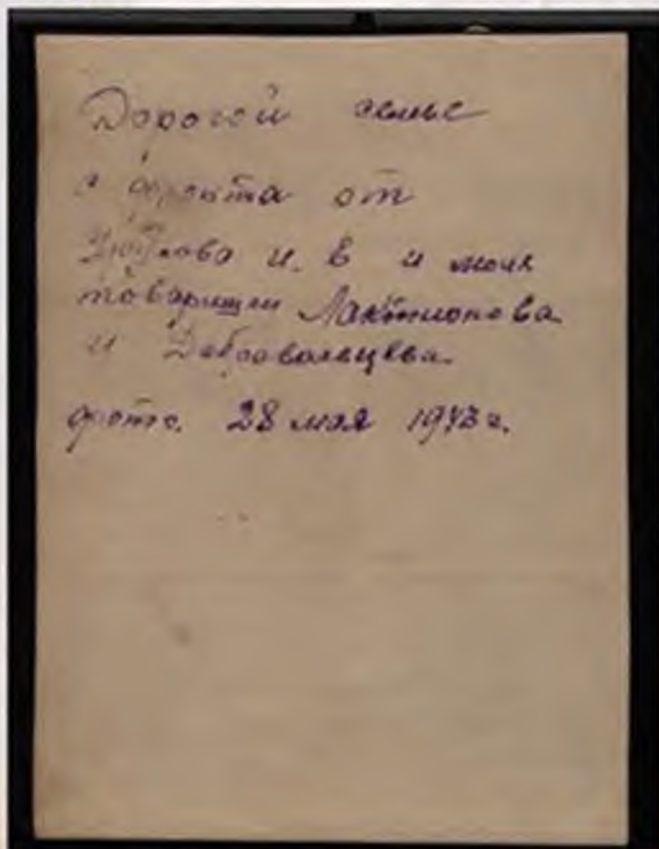 Дорогой семье
с фронта от
И. В и моих
товарищей Лактионова
и Добровольцева.
фото. 28 мая 1943 г.